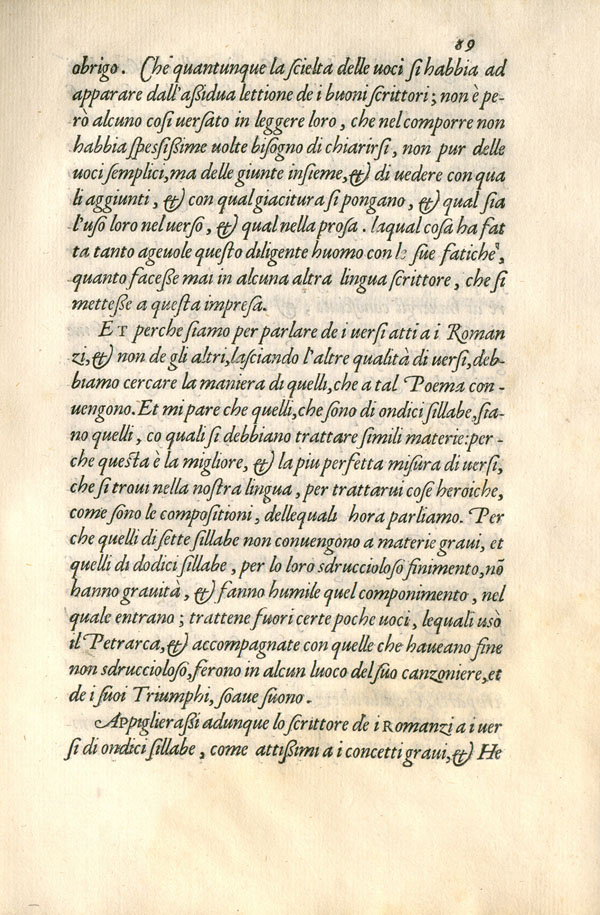 89
obrigo. Che quantunque la scielta delle uoci si habbia ad
apparare dall'aßidua lettione de i buoni scrittori; non è pe-
rò alcuno cosi uersato in leggere loro, che nel comporre non
habbia speßißime uolte bisogno di chiarirsi, non pur delle
uoci semplici, ma delle giunte insieme, & di uedere con qua
li aggiunti, & con qual giacitura si pongano, & qual sia
l'uso loro nel uerso, & qual nella prosa. laqual cosa ha fat
ta tanto ageuole questo diligente huomo con le sue fatiche,
quanto faceße mai in alcuna altra lingua scrittore, che si
metteße a questa impresa.
ET perche siamo per parlare de i uersi atti a i Roman
zi, & non de gli altri, lasciando l'altre qualità di uersi, deb-
biamo cercare la maniera di quelli, che a tal Poema con-
uengono. Et mi pare che quelli, che sono di ondici sillabe, sia-
no quelli, co quali si debbiano trattare simili materie: per-
che questa è la migliore, & la piu perfetta misura di uersi,
che si troui nella nostra lingua, per trattarui cose heroiche,
come sono le compositioni, dellequali hora parliamo. Per
che quelli di sette sillabe non conuengono a materie graui, et
quelli di dodici sillabe, per lo loro sdruccioloso finimento, nō
hanno grauità, & fanno humile quel componimento, nel
quale entrano; trattene fuori certe poche uoci, lequali usò
il Petrarca, & accompagnate con quelle che haueano fine
non sdruccioloso, ferono in alcun luoco del suo canzoniere, et
de i suoi Triumphi, soaue suono.
APpiglieraßi adunque lo scrittore de i Romanzi a i uer
si di ondici sillabe, come attißimi a i concetti graui, & He